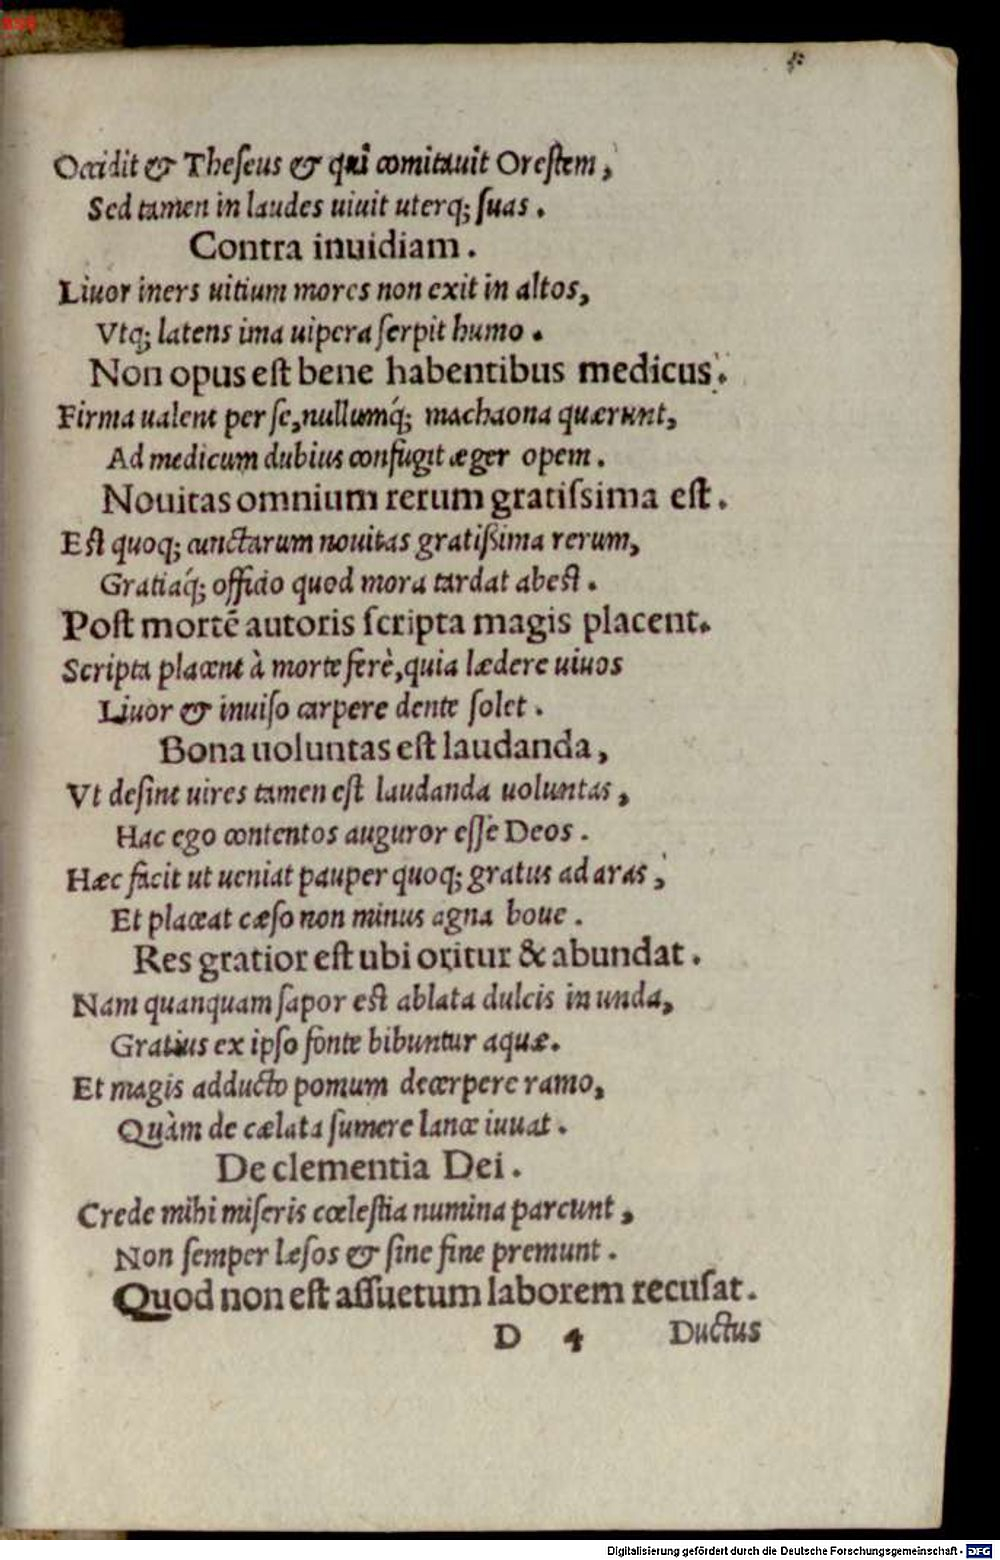 Occidit & Theſeus & qui comitauit Oreſtem,
Sed tamen in laudes uiuit uterq; ſuas.
Contra inuidiam.
Liuor iners uitium mores non exit in altos,
Vtq; latens ima uipera ſerpit humo.
Non opus eſt bene habentibus medicus.
Firma ualent per ſe, nullumq́; machaona quærunt,
Ad medicum dubius confugit æger opem.
Nouitas omnium rerum gratiſsima eſt.
Eſt quoq; cunctarum nouitas gratiſsima rerum,
Gratiaq́; officio quod mora tardat abeſt.
Poſt mortē autoris ſcripta magis placent.
Scripta placent à morte ferè, quia lædere uiuos
Liuor & inuiſo carpere dente ſolet.
Bona uoluntas eſt laudanda,
Vt deſint uires tamen eſt laudanda uoluntas,
Hac ego contentos auguror eſſe Deos.
Hæc facit ut ueniat pauper quoq; gratus ad aras,
Et placeat cæſo non minus agna boue.
Res gratior eſt ubi oritur & abundat.
Nam quanquam ſapor eſt ablata dulcis in unda,
Gratius ex ipſo fonte bibuntur aquæ.
Et magis adducto pomum decerpere ramo,
Quàm de cælata ſumere lance iuuat.
De clementia Dei.
Crede mihi miſeris cœleſtia numina parcunt,
Non ſemper læſos & ſine fine premunt.
Quod non eſt aſſuetum laborem recuſat.
D 4 Ductus
Digitalisierung gefördert durch die Deutsche Forschungsgemeinschaft - DFG